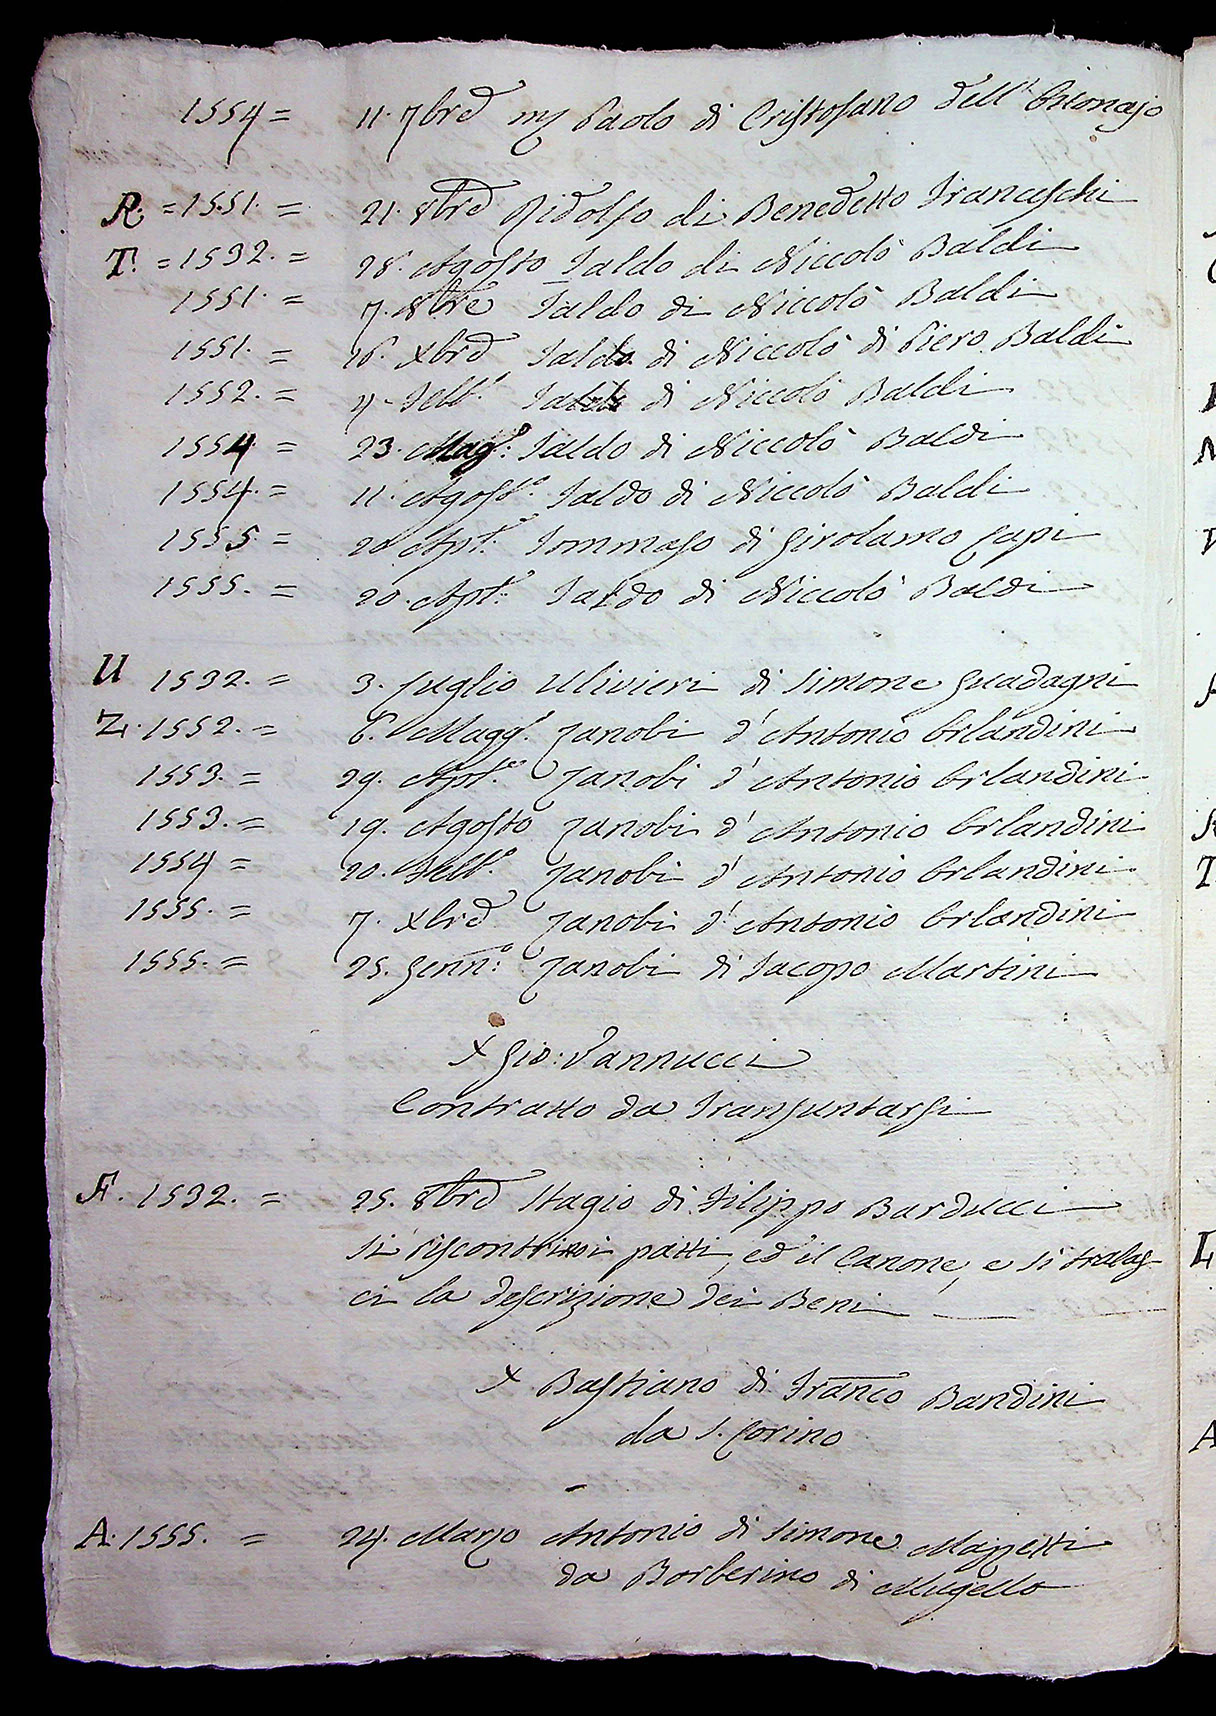 1554 = 11. 7bre m Paolo di Cristofano dell'Ottonajo
R. = 1551. = 21. 8bre Ridolfo di Benedetto Franceschi
T. = 1532. = 28. Agosto Taldo di Niccolò Baldi
1551. = 7. 8bre Taldo di Niccolò Baldi
1551. = 16. Xbre Taldo di Niccolò di Piero Baldi
1552. = 4. Febb.o Taldo di Niccolò Baldi
1554. = 23. Mag.o: Taldo di Niccolò Baldi
1554. = 11. Agost.o Taldo di Niccolò Baldi
1555 = 20 Apl.e Tommaso di Girolamo Lapi
1555. = 20. Apl.e Taldo di Niccolò Baldi
U 1532. = 3. Luglio Ulivieri di Simone Guadagni
Z. 1552. = 6. Magg.o Zanobi d'Antonio Orlandini
1553. = 29. Apl.e Zanobi d'Antonio Orlandini
1553. = 19. Agosto Zanobi d'Antonio Orlandini
1554 = 20. Febb.o Zanobi d'Antonio Orlandini
1555. = 7. Xbre Zanobi d'Antonio Orlandini
1555. = 25. Genn.o: Zanobi di Iacopo Martini
X Gio: Vannucci
Contratto da Transuntarsi
F. 1532. = 25. 8bre Stagio di Filippo Barducci
si riscontrino i patti, ed il Canone, e si tralas-
ci la descrizione dei Beni
X Bastiano di Franco Bandini
da S. Corino
A. 1555. = 24. Marzo Antonio di Simone Mazzetti
da Borberino di Mugello